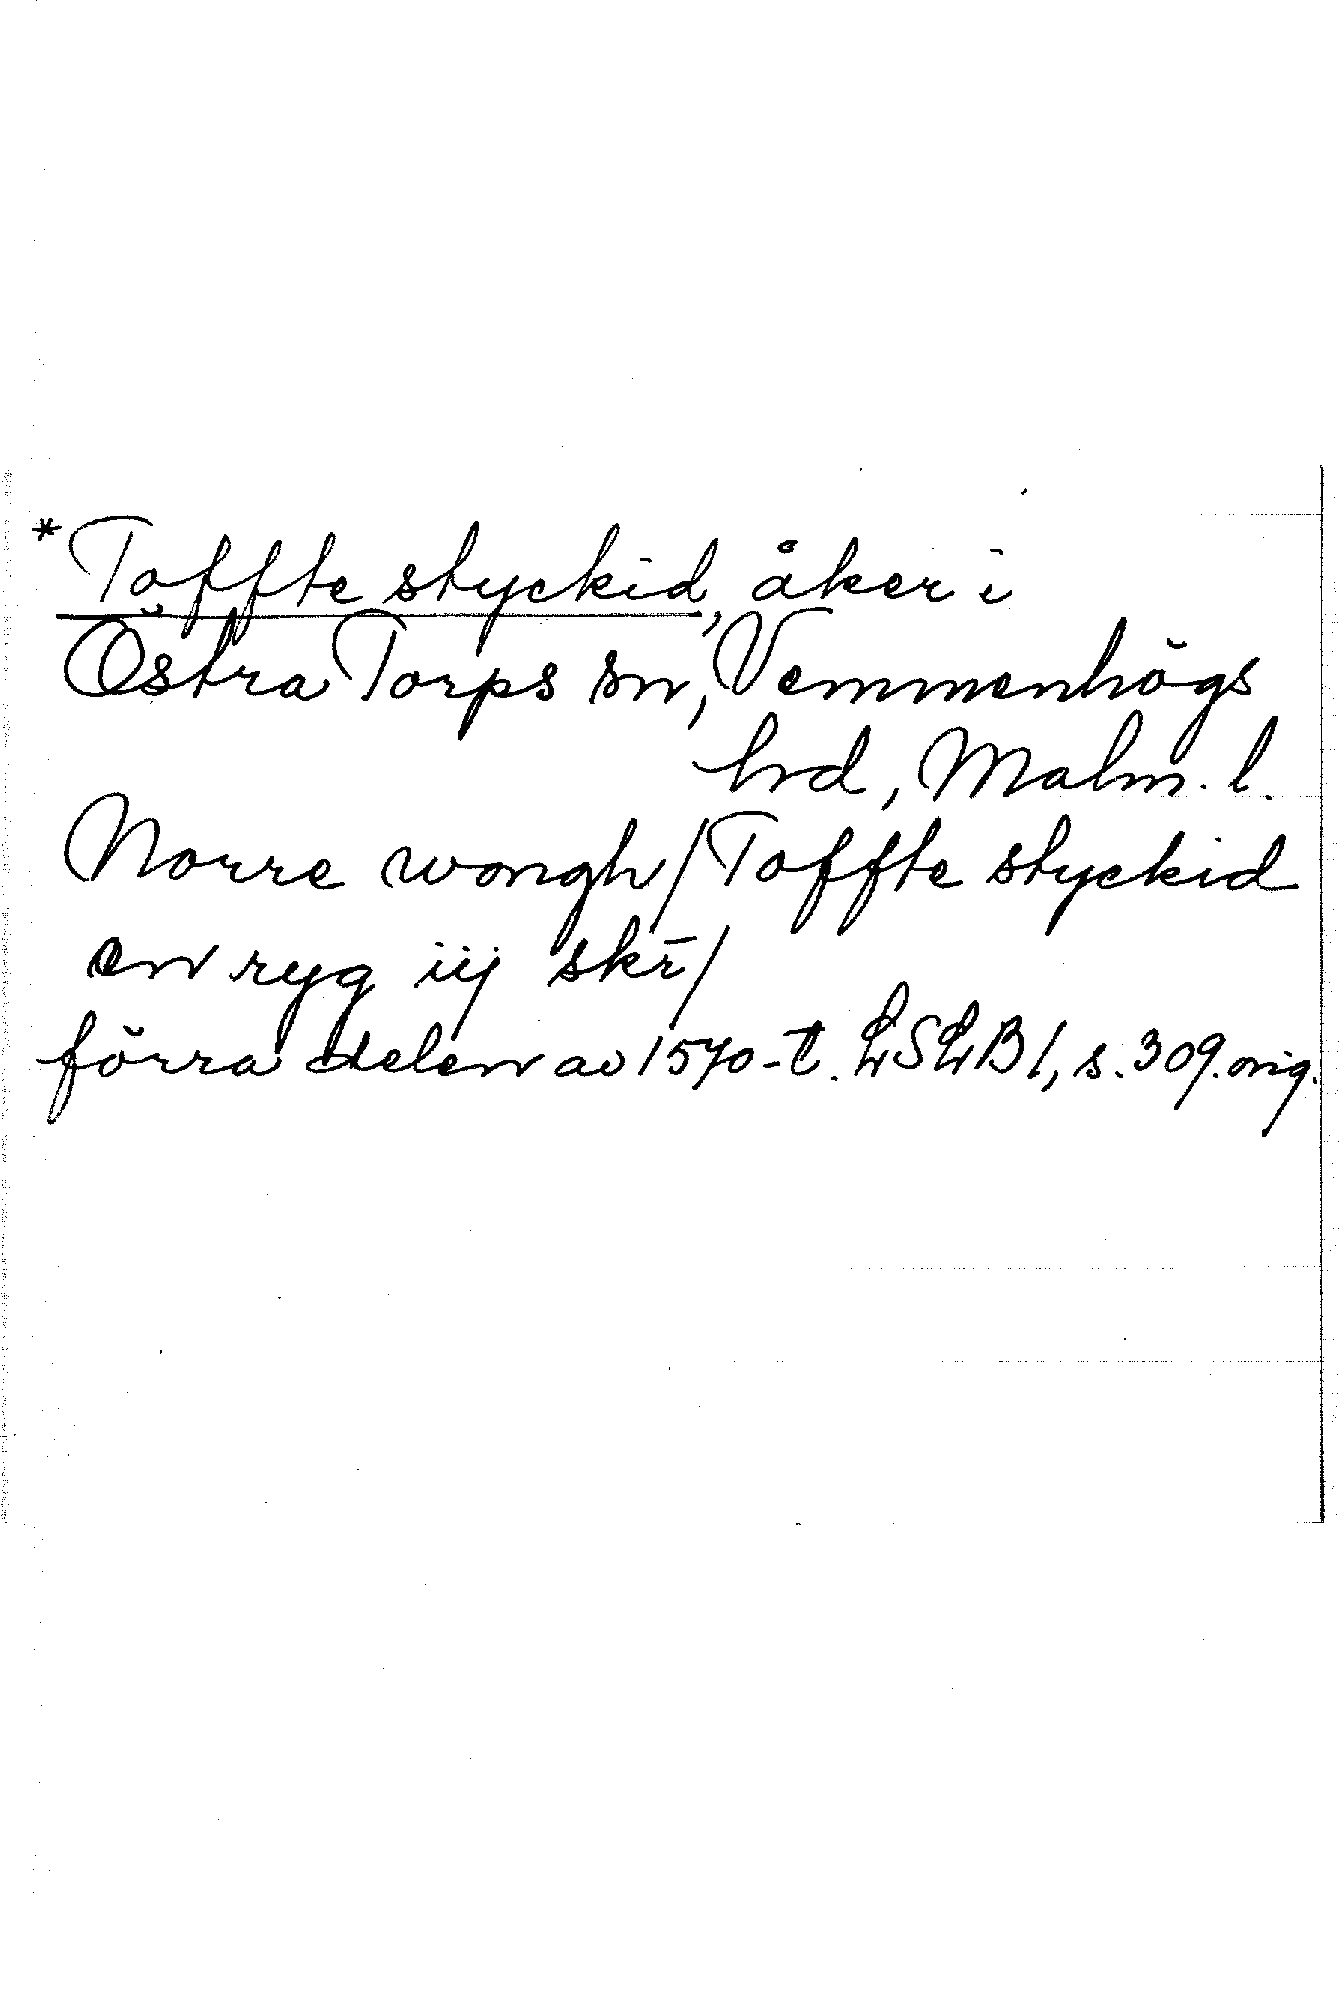 *Toffte styckid, åker i
Östra Torps sn, Vemmenhögs
hrd, Malm. l.
Norre wongh/Toffte styckid
en ryg iij skr̄/
förra delen av 1570-t. LSLB 1, s. 309. orig.